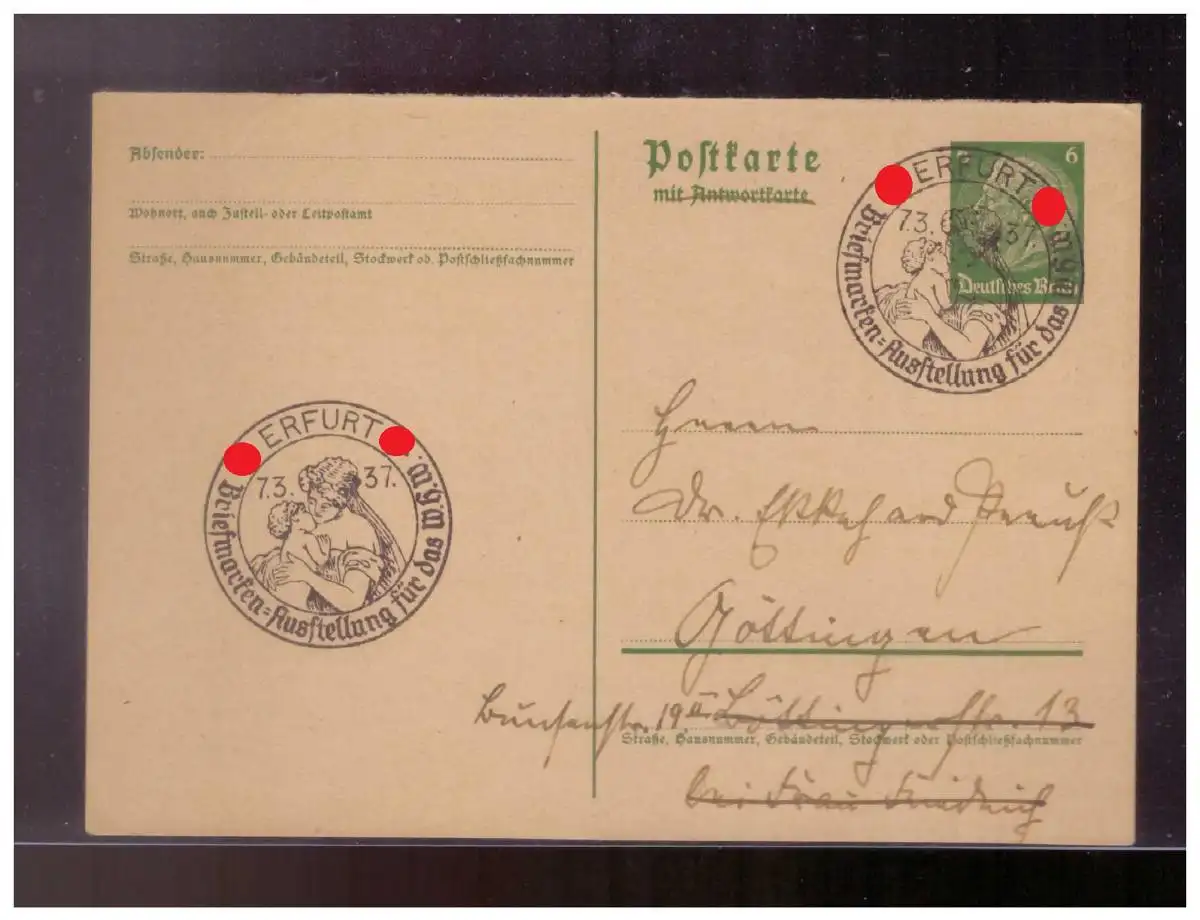 Absender:
Wohnort, auch Zustell- oder Leitpostamt
Straße, Hausnummer, Gebäudeteil, Stockwerk od. Postschließfachnummer
Postkarte
mit Antwortkarte
6
Deutsches Reich
ERFURT
7.3. 37.
Briefmarken=Ausstellung für das W.H.W.
ERFURT
7.3. 37.
Briefmarken=Ausstellung für das W.H.W.
Herrn
Dr. Ekkehard
Göttingen
Bunsenstr. 19 II Böttingerstr. 13
Straße, Hausnummer, Gebäudeteil, Stockwerk oder Postschließfachnummer
bei Frau Friedrich